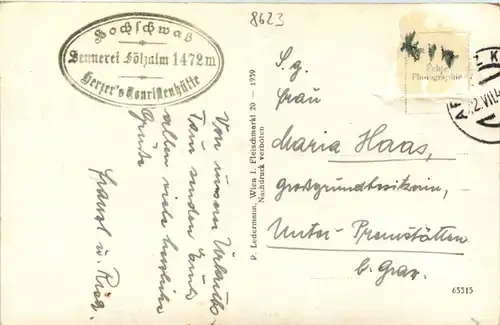 Hochschwab
Sennerei Fölzalm 1472m
Herzer's Touristenhütte
8623
Echte
Photographie
Von unserer Urlaubs
Tour senden Euch
allen viele herzliche
Grüße
Franzl u. Resi.
P. Ledermann, Wien I. Fleischmarkt 20 – 1939
Nachdruck verboten
S. g.
Frau
Maria Haas,
Großgrundbesitzerin,
Unter-Premstätten
b. Graz.
65315